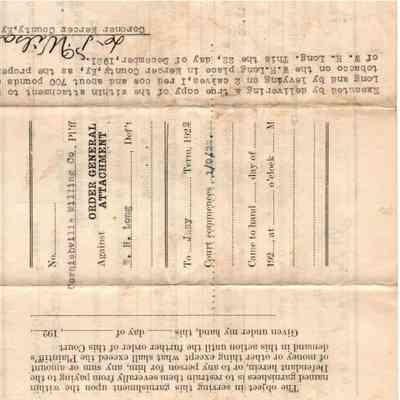 Executed by delivering a true copy of the within attachment to
Long and by levying on 2 calves,1 red cow and about 700 pounds
tobacco on the W.H.Long place in Mercer County,Ky, as the proper
of W. H. Long. This the 22, day of december,1921.
Wilso
Coroner Mercer County,Ky
No.
Cornishville Milling Co. Pl'ff
ORDER GENERAL
ATTACHMENT
Against
W. H. Long Def't
To Jany Term, 1922
Court commences
Came to hand day of
192 , at o'clock M
The object in serving this garnishment upon the within
named garnishees is to restrain them severally from paying to the
Defendant herein, or to any person for him, any sum or amount
of money or other thing except what shall exceed the Plaintiff's
demand in this action until the further order of this Court.
Given under my hand, this day of , 192